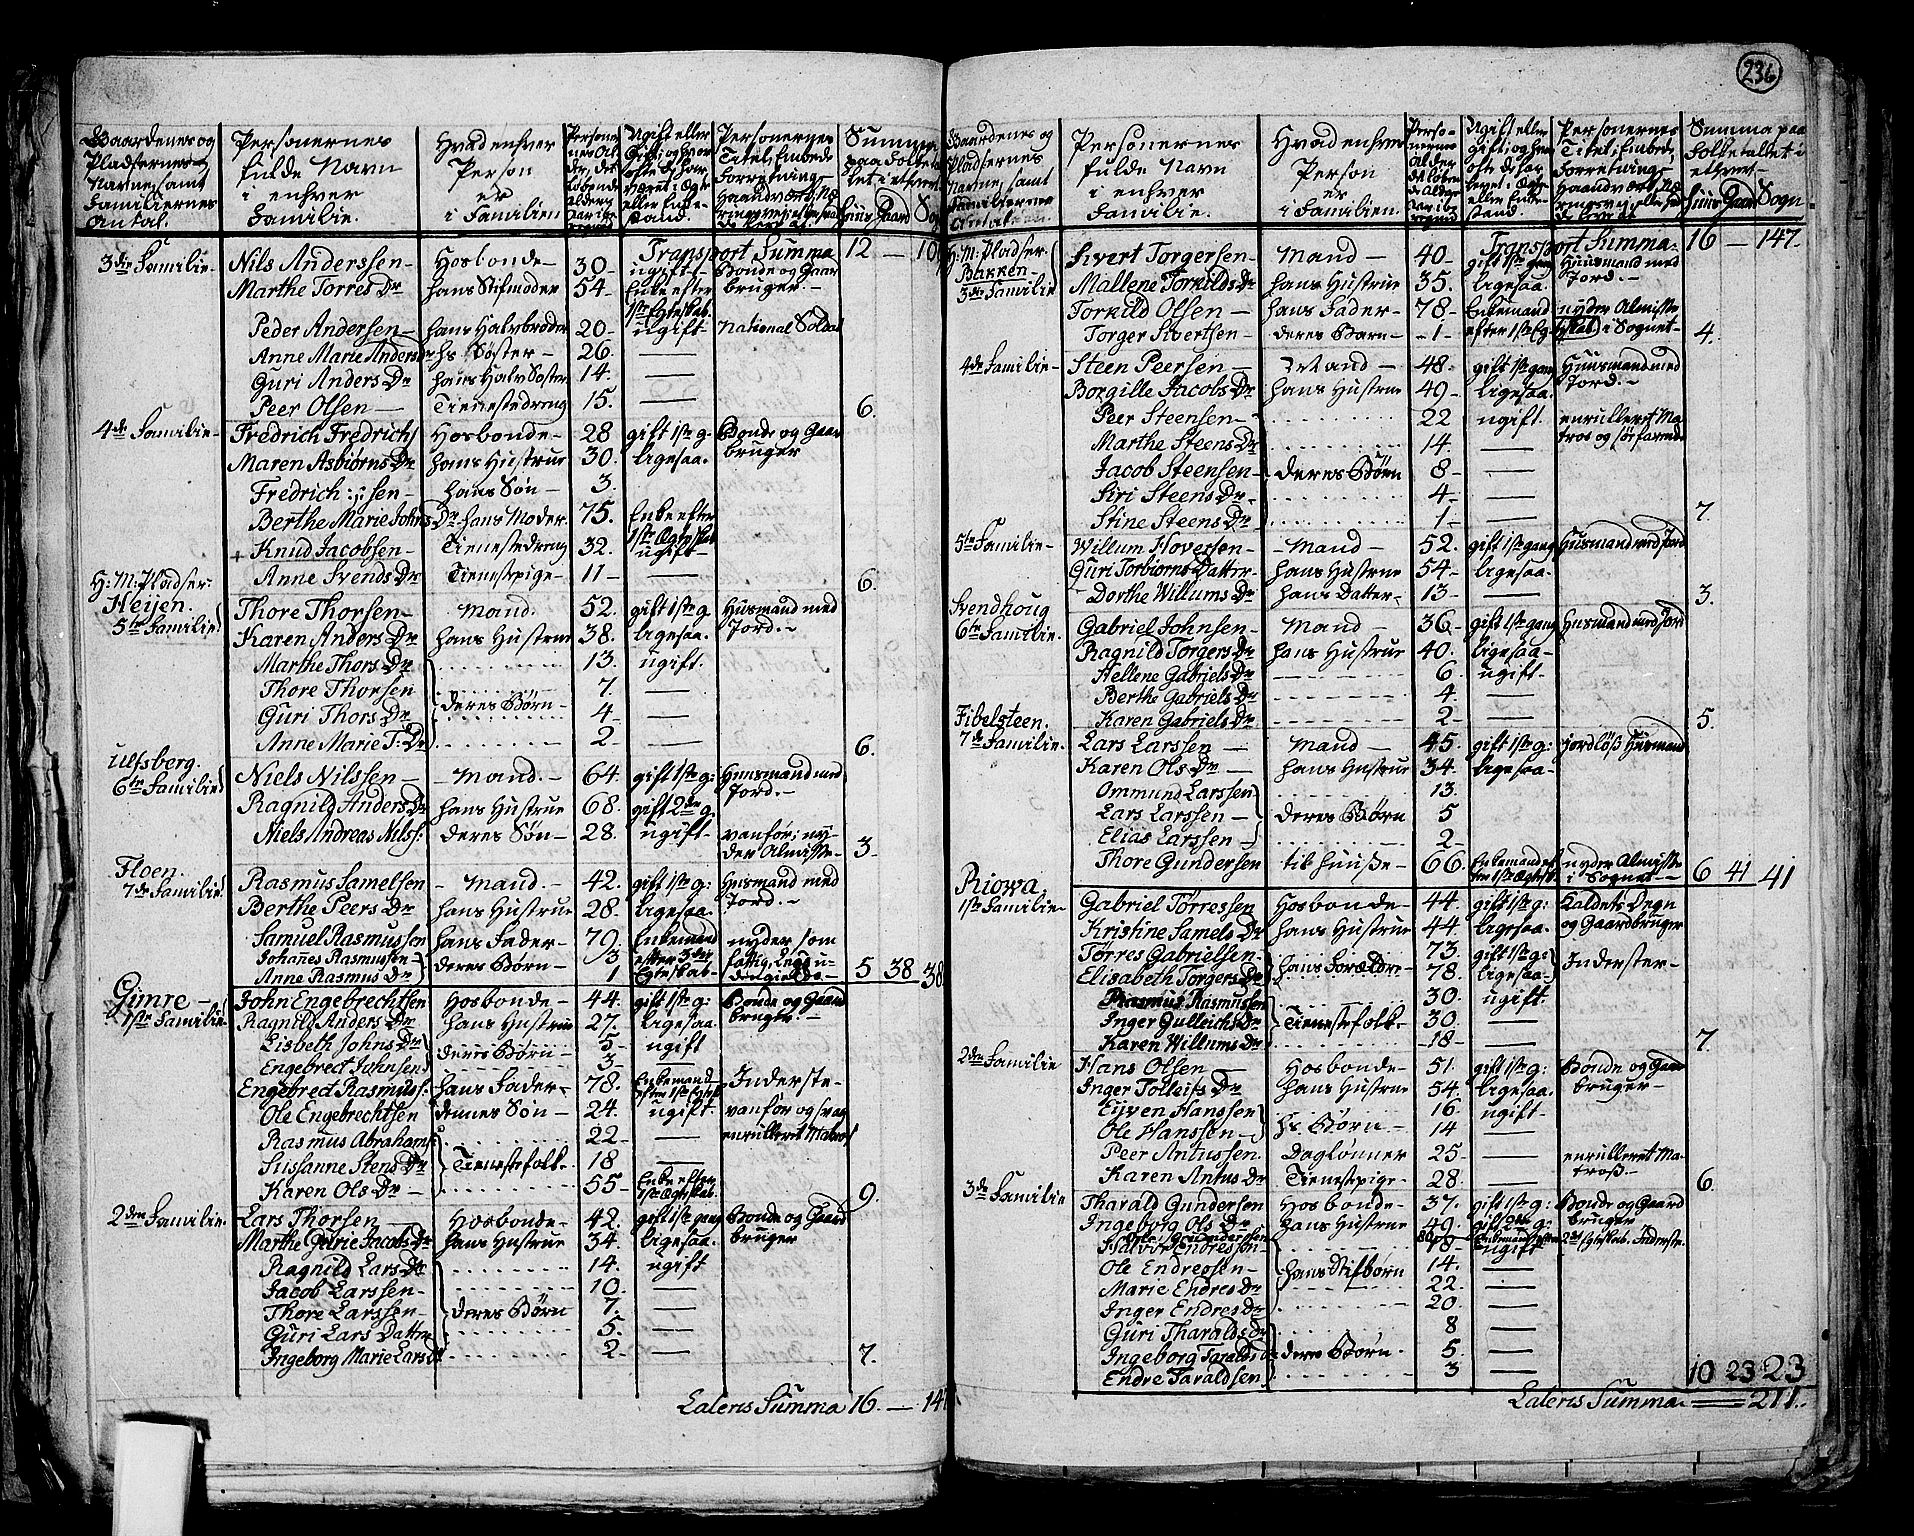 236
Gaardenes og Pladsernes Navne, samt Familiernes Antal. | Personernes fulde Navn i enhver Familie. | Hvad enhver Person er i Familien | Personernes Alder, det løbende Alders Aar iberegned | Ugift eller Gift; og hvor ofte de har været i Ægte eller Enkestand. | Personernes Titel, Embede Forretning, Haandværk, Næringsvei | Summa paa Folketallet i ethvert Huus Gaard Sogn
Transport Summa 12 —
3die Familie Nils Anderssen — Hosbonde — 30 — ugift — Bonde og Gaar
Marthe Torres Dr hans Stifmoder 54 — Enke efter bruger —
1ste Egteskab.
Peder Andersen — hans Halvbroder 20 — ugift National Soldat
Anne Marie Anders Dr hs Søster — 26. —
Guri Anders Dr hans Halv Søster 14. —
Peer Olsen — Tienestedreng 15. — 6.
4de Familie — Fredrich Fredrichs Hosbonde — 28 gift 1ste g. Bonde og Gaar
Maren Asbiørns Dr hans Hustrue 30. ligesaa. bruger
Fredrich :,: sen — hans Søn — 3.
Berthe Marie Johns Dr — hans Moder. 75. Enke efter
1ste Ægteskab
+ Knud Jacobsen — Tienestedreng 32. ugift —
Anne Svends Dr Tienestpige — 11 — — 6.
H: M: Pladser:
Heijen.
5te Familie Thore Thorsen — Mand. 52. gift 1ste g. Husmand med
Karen Anders Dr hans Hustrue 38. ligesaa. Jord. —
Marthe Thors Dr 13. ugift.
Thore Thorsen deres Børn — 7. —
Guri Thors Dr 4 — —
Anne Marie T: Dr 2 — — 6.
Ulfsberg.
6te Familie Niels Nilssen — Mand. — 64. gift 1ste g: Huusmand med
Ragnild Anders Dr hans Hustrue 68. gift 2de g: Jord. —
Niels Andreas Nilss: deres Søn — 28. ugift — vanfør; ny-
der Almisse — 3 —
Floen.
7de Familie Rasmus Samelsen — Mand. — 42. gift 1ste g: Husmand med
Berthe Peers Dr hans Hustrue 28 — ligesaa. Jord. —
Samuel Rasmussen hans Fader — 79. Enkemand nyder som
Johannes Rasmussen — deres Børn — 3 efter 3die fattig
Anne Rasmus Dr 1 Egteskab 5 38 38
Gimre —
1ste Familie John Engebrechtsen Hosbonde — 44. gift 1ste g: Bonde og Gaard
Ragnild Anders Dr hans Hustrue 27. ligesaa. bruger. —
Lisbeth Johns Dr deres Børn — 5 — ugift
Engebrect Johnsen 3
Engebrect Rasmuss: hans Fader — 78. Enkemand Inderste —
efter 1ste Egtes
Ole Engebrechtsen dennes Søn — 24. ugift vanfør og svag
Rasmus Abrahams: 22 — — enrulleret Matros
Susanne Stens Dr Tienestefolk. 18 —
Karen Ols Dr — 55 — Enke efter
1ste Ægteskab. 9.
2den Familie. Lars Thorsen — Hosbonde — 42. gift 1ste gang Bonde og Gaard
Marthe Gurie Jacobs Dr hans Hustrue 34. ligesaa. bruger
Ragnild Lars Dr 14. ugift
Jacob Larssen — 10. —
Thore Larssen — deres Børn 7. —
Guri Lars Datter 5. —
Ingeborg Marie Lars Dr 2 — — 7.
Lateris Summa 16. — 147
Gaardenes og Pladsernes Navne, samt Familiernes Antal. | Personernes fulde Navn i enhver Familie. | Hvad enhver Person er i Familien. | Personernes Alder det løbende Alders Aar iberegned | Ugift eller gift; og hvor ofte de har været i Ægte eller Enkestand. | Personernes Titel, Embede, Forretning, Haandværk | Summa paa Folketallet i ethvert Huus Gaard Sogn
Transport Summa — 16 — 147 —
H: M: Pladser
Bakken —
3die Familie Sivert Torgersen — Mand — 40 — gift 1ste gang Huusmand med
Mallene Torkilds Dr hans Hustrue 35. ligesaa. Jord. —
Torkild Olsen — hans Fader — 78 — Enkemand nyder Almisse
Torger Sivertsen — deres Barn — 1 — efter 1ste Eg- i Sognet — 4.
4de Familie — Steen Peersen — Mand — 48. gift 1ste gang Huusmand med
Borgille Jacobs Dr hans Hustrue 49 — ligesaa. Jord. —
Peer Steensen — 22 ugift. enrulleret Ma-
Marthe Steens Dr 14. — tros og søefarende
Jacob Steensen — deres Børn 8 — —
Siri Steens Dr. 4 — —
Stine Steens Dr 1 — — 7.
5te Familie — Willum Hoversen — Mand — 52. gift 1ste gang Husmand med Jord
Guri Torbiørns Datter — hans Hustrue 54 — ligesaa.
Dorthe Willums Dr hans Datter — 13 — — 3.
Svendhoug
6te Familie. Gabriel Johnsen — Mand — 36 — gift 1ste gang Husmand med Jord
Ragnild Torgers Dr hans Hustrue 40. ligesaa —
Hellene Gabriels Dr 6. ugift —
Berthe Gabriels Dr 4. —
Karen Gabriels Dr 2 — — 5.
Fibelsteen.
7de Familie. Lars Larssen — Mand — 45. gift 1ste g: jordløß Husmand
Karen Ols Dr — hans Hustrue 34. ligesaa —
Ommund Larssen 13.
Lars Larssen — deres Børn 5
Elias Larssen — 2 —
Thore Gundersen til huuse — 66. Enkemand ef- nyder Almisse
ter 1ste Ægtesk. i Sognet — 6 41 41
Riowa.
1ste Familie — Gabriel Tørressen Hosbonde — 44. gift 1ste g: Kaldets Degn
Kristine Samels Dr hans Hustrue 44 ligesaa. og Gaardbruger
Tørres Gabrielsen — hans Forældre — 73. gift 1ste g: Inderster —
Elisabeth Torgers Dr 78. ligesaa —
Rasmus Rasmussen 30. ugift.
Inger Gulleichs Dr Tienestefolk. 30. —
Karen Willums Dr 18 — — 7
2den Familie Hans Olsen — Hosbonde — 51. gift 1ste g: Bonde og Gaard
Inger Tolleifs Dr hans Hustrue 54. ligesaa — bruger —
Eyven Hanssen hs Børn — 16. ugift —
Ole Hanssen — 14 —
Peer Antussen. Daglønner 25 — — enrulleret Ma-
Karen Antus Dr Tienestpige — 28. — troß. — 6.
3die Familie Tharald Gundersen Hosbonde — 37. gift 1ste g: Bonde og Gaard
Ingeborg Ols Dr hans Hustrue 49. gift 2det g: bruger
2det Egteskab. Inderste.
Halvor Endressen — 18 — ugift
Ole Endressen — hans Stifbørn 14. —
Marie Endres Dr 22. —
Inger Endres Dr 20. —
Guri Tharalds Dr 8 —
Ingeborg Taralds Dr deres Børn. 5. —
Endre Taraldsen 3 — 10 23 23
Lateris Summa. — 211.